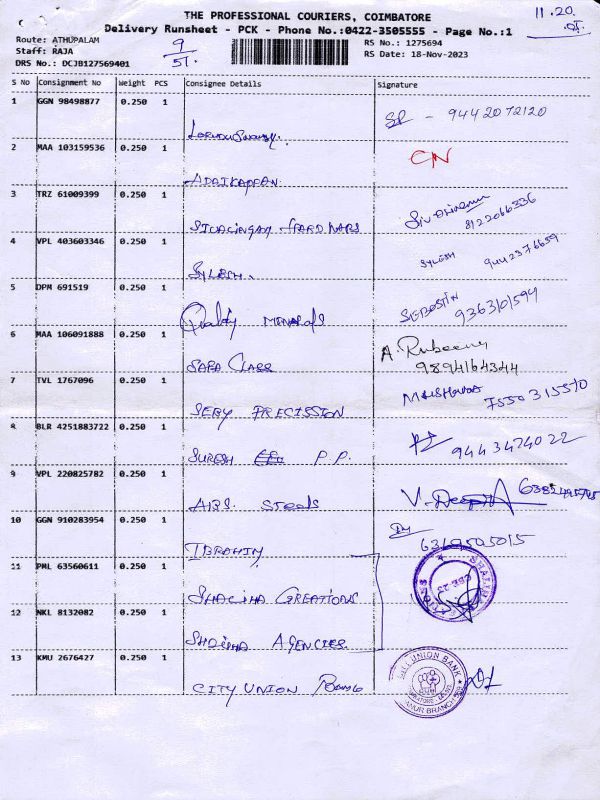 THE PROFESSIONAL COURIERS, COIMBATORE
11.20
Delivery Runsheet - PCK - Phone No.:0422-3505555 - Page No.:1
Route: ATHUPALAM
Staff: RAJA
DRS No.: DCJB127569401
9
51.
RS No.: 1275694
RS Date: 18-Nov-2023
S No Consignment No Weight PCS Consignee Details Signature
1 GGN 98498877 0.250 1
9442072120
2 MAA 103159536 0.250 1 CN
ADAIKAPPAN
3 TRZ 61009399 0.250 1
8122066336
SIVALINGAM HARDWARS
4 VPL 403603346 0.250 1 SYLESH 9442376659
SYLESH.
5 DPM 691519 0.250 1 SEBOSTIN 9363101594
Quality MINARALS
6 MAA 106091888 0.250 1 A. Rubeena
9894164344
SARA CLASS
7 TVL 1767096 0.250 1 7550315570
SEBY PRECISSION
8 BLR 4251883722 0.250 1 9443474022
SURESH P.P.
9 VPL 220825782 0.250 1 V. Deepa
AIBS. Steels
10 GGN 910283954 0.250 1
6369505015
IBRAHIM
11 PML 63560611 0.250 1
SHALIHA CREATIONS
12 NKL 8132082 0.250 1
SHALIHA AGENCIES
13 KMU 2676427 0.250 1
CITY UNION BANK
CITY UNION Bank